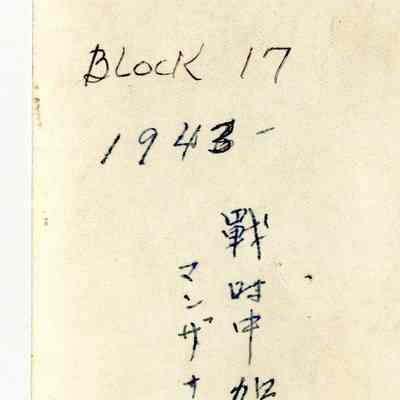 BLOCK 17
1943-
戰時中加
マンザナ